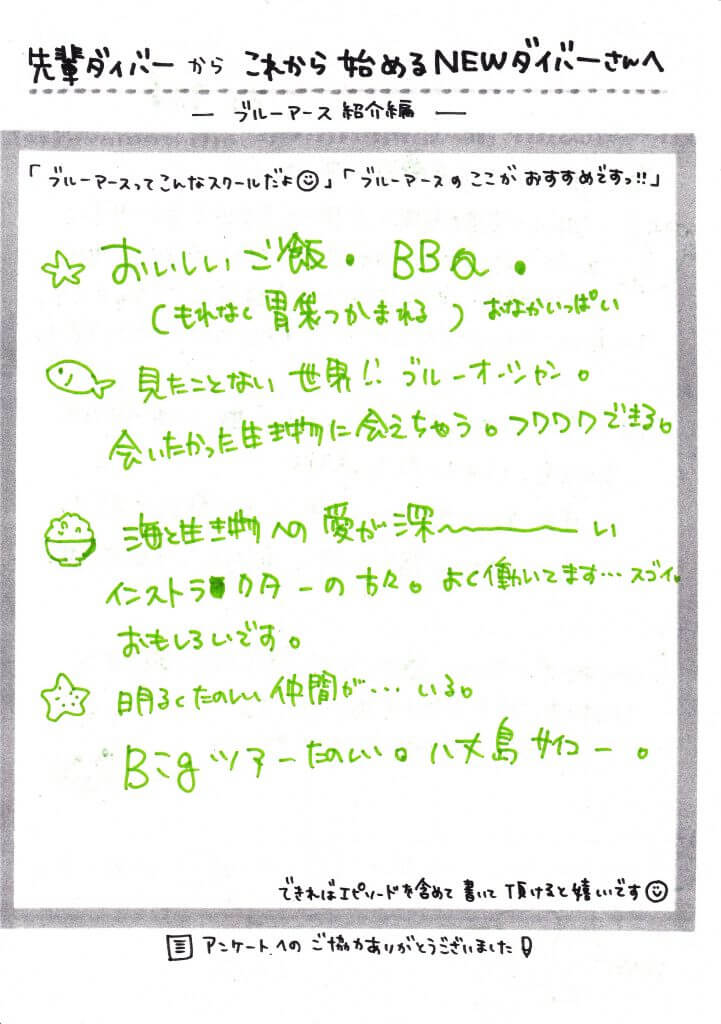 先輩ダイバーから これから始めるNEWダイバーさんへ
― ブルーアース紹介編 ―
「ブルーアースってこんなスクールだよ☺」「ブルーアースのここがおすすめですっ!!」
☆ おいしいご飯。BBQ。
(もれなく胃袋つかまれる) おなかいっぱい
見たことない世界!! ブルーオーシャン。
会いたかった生き物に会えちゃう。ワクワクできる。
海と生き物への愛が深〜い
インストラクターの方々。よく働いてます…スゴイ。
おもしろいです。
☆ 明るくたのしい仲間が…いる。
Bigツアーたのしい。八丈島サイコー。
できればエピソードを含めて書いて頂けると嬉しいです☺
アンケートへのご協力ありがとうございました